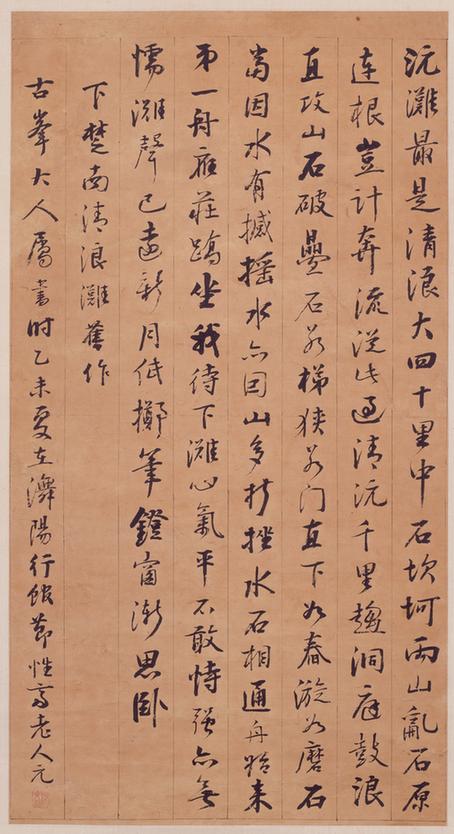 沅灘最是清浪大四十里中石坎坷兩山亂石原
連根豈計奔流從此過清沅千里趨洞庭鼓浪
直攻山石破疊石若梯狹若門直下如春漩如磨石
當因水有撼搖水亦因山多折挫水石相通舟始來
第一舟雇莊蹻坐我待下灘心氣平不敢恃强亦無
懦灘聲已遠新月低擲筆鐙窗漸思臥
下楚南清浪灘舊作
古峯大人屬書時乙未夏在濟陽行館節性齋老人元